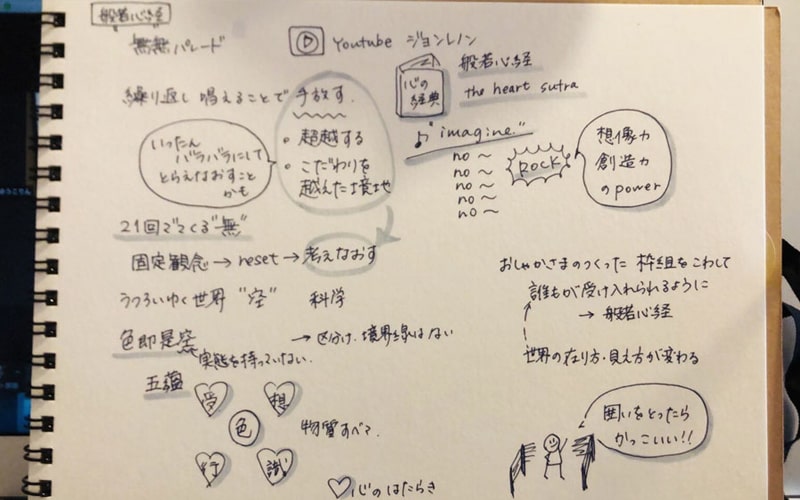 般若心経
"無無パレード"
Youtube ジョンレノン
繰り返し 唱えることで 手放す.
・超越する
・こだわりを
越えた境地
いったん
バラバラにして
とらえなおすこと
かも
心の
経典
般若心経
the heart sutra
♪ "imagine"
no ～
no ～
no ～
no ～
no ～
ROCK
想像力
創造力
のpower
21回でてくる"無"
固定観念 → reset → 考えなおす
うつろいゆく世界 "空" 科学
色即是空
→ 区分け、境界線はない
実態を持っていない.
五蘊
受
想
色
行
識
物質すべて.
♡心のはたらき
おしゃかさまのつくった 枠組をこわして
誰もが受け入れられるように
→ 般若心経
世界の在り方・見え方が変わる
囲いをとったら
かっこいい!!